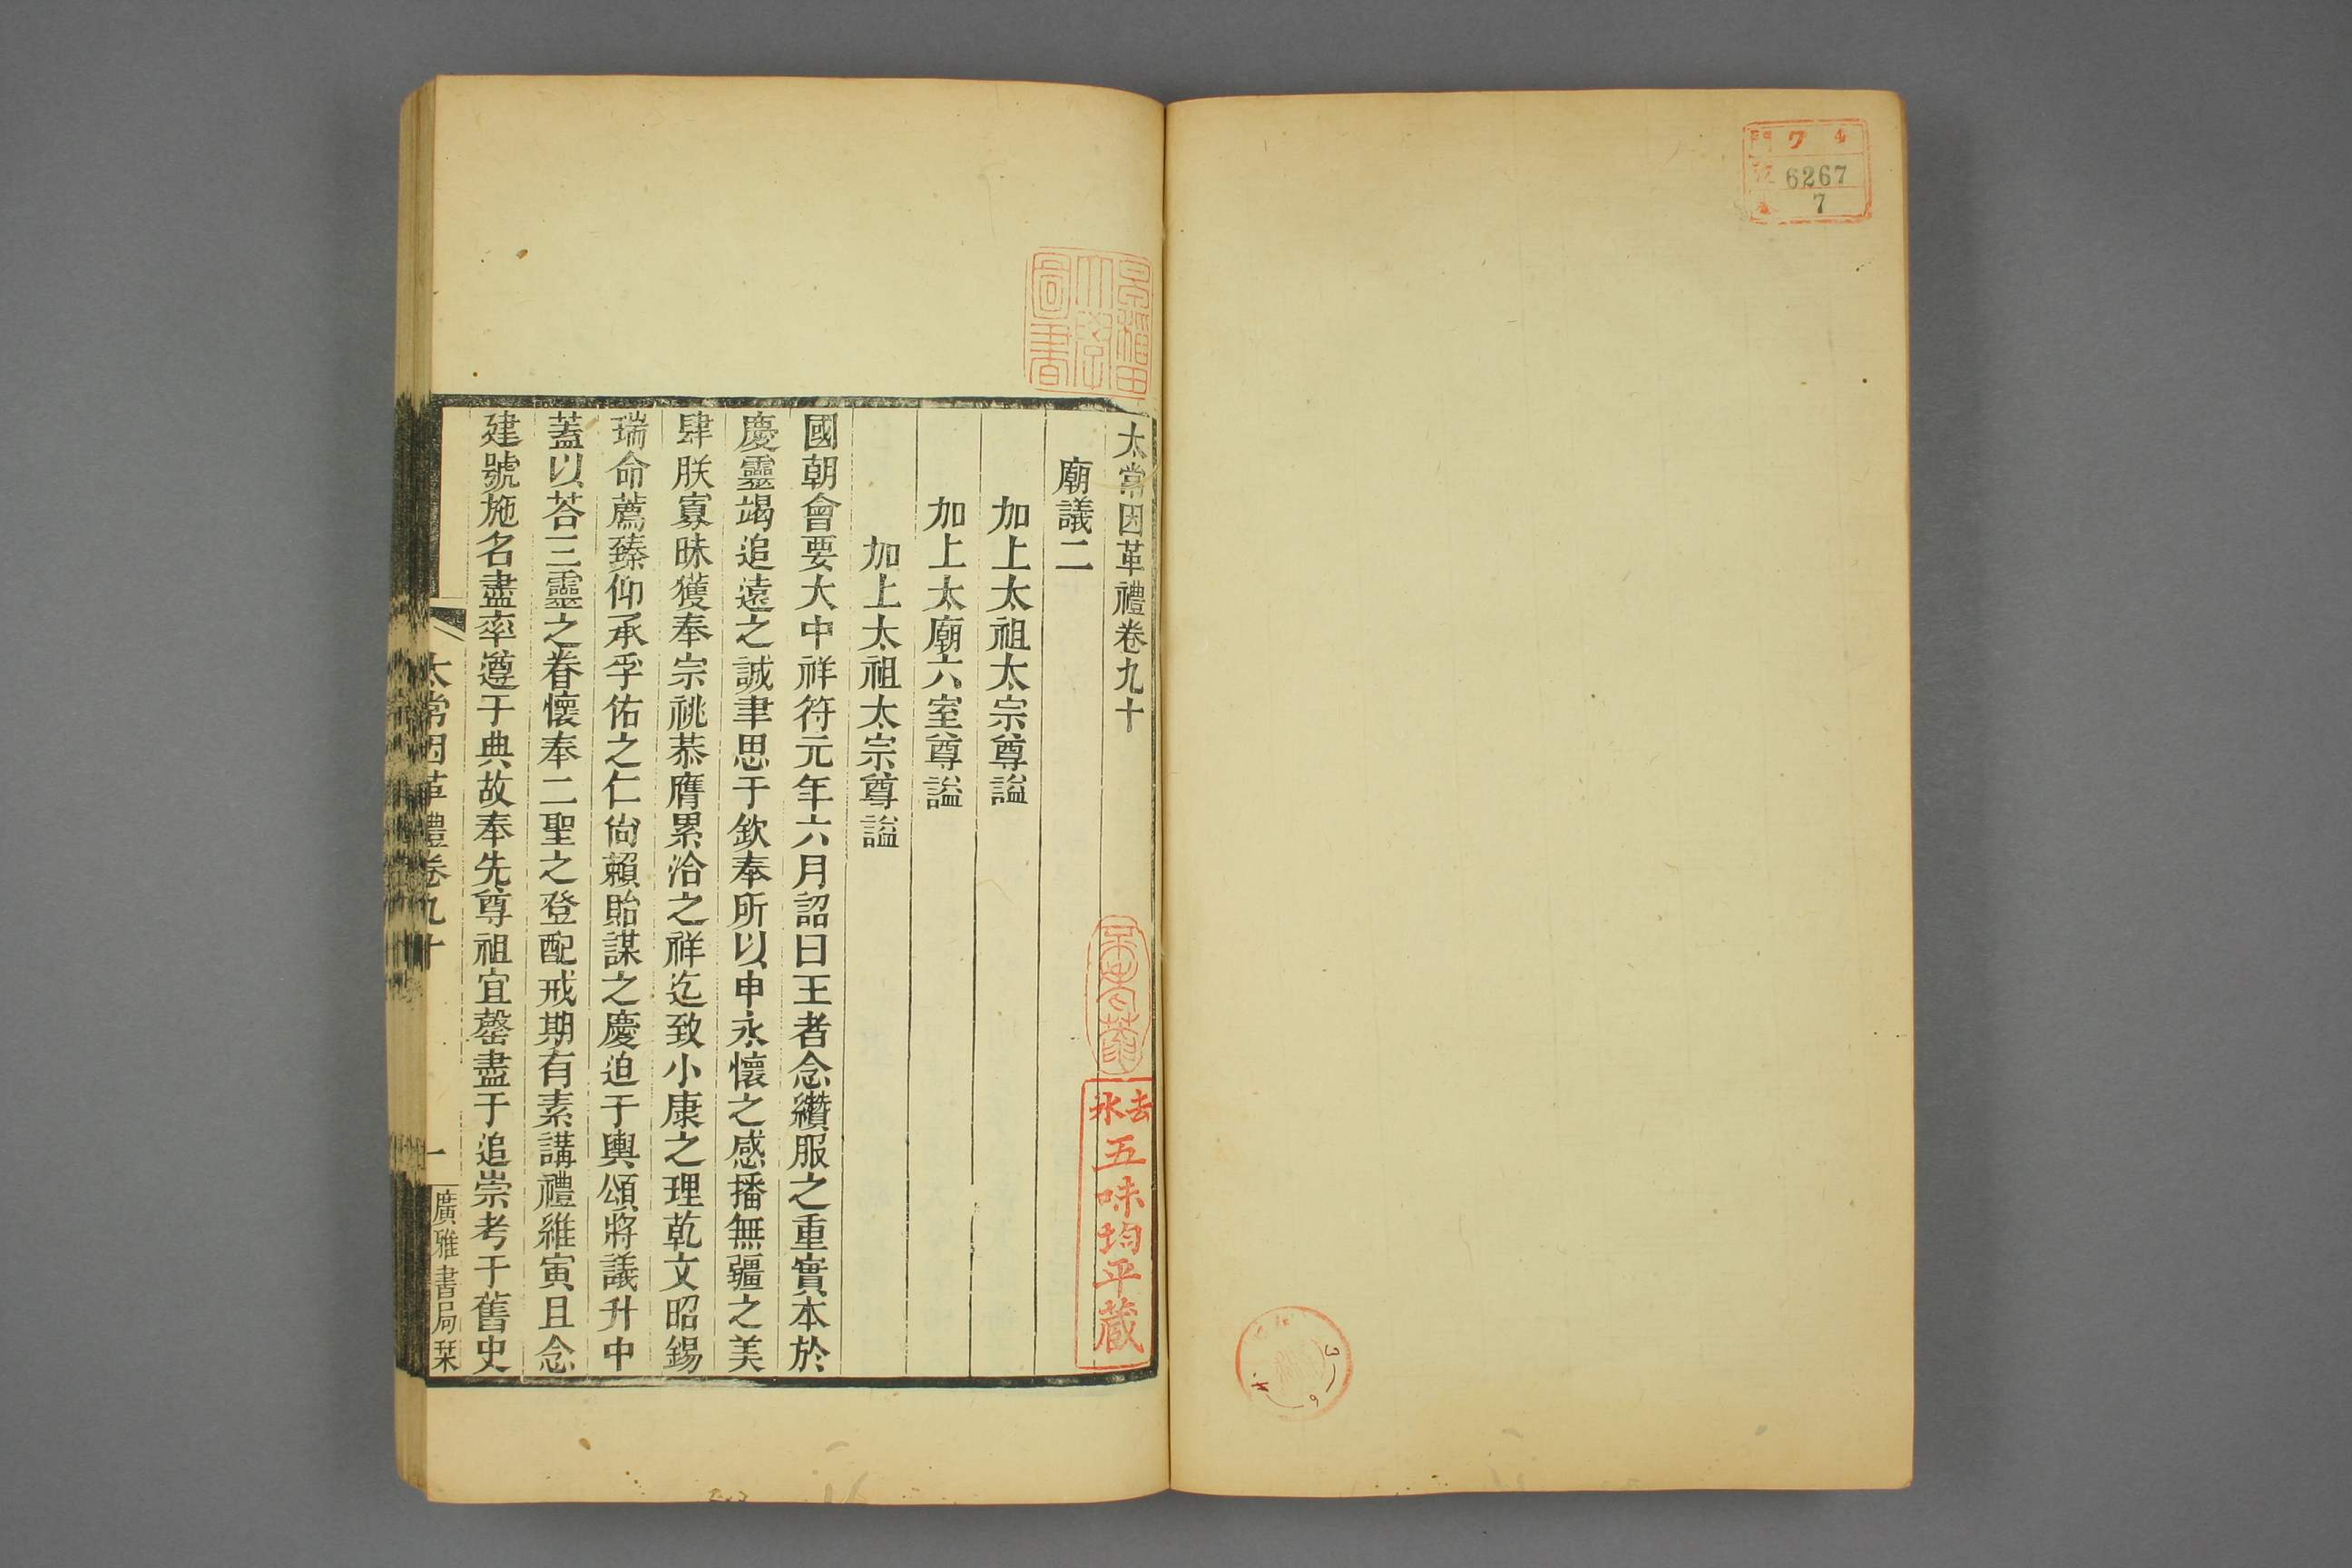 太常因革禮卷九十
廟議二
加上太祖太宗尊謚
加上太廟六室尊謚
加上太祖太宗尊謚
國朝會要大中祥符元年六月詔曰王者念纘服之重實本於
慶靈竭追遠之誠聿思于欽奉所以申永懷之感播無疆之美
肆朕寡昧獲奉宗祧恭膺累洽之祥迄致小康之理乾文昭錫
瑞命薦臻仰承孚佑之仁尙賴貽謀之慶迫于輿頌將議升中
蓋以荅三靈之眷懷奉二聖之登配戒期有素講禮維寅且念
建號施名盡率遵于典故奉先尊祖宜罄盡于追崇考于舊史
太常因革禮卷九十
一
廣雅書局栞
早稻田
大學
圖書
去水
五味均平蔵
門 ワ 4
號 6267
7